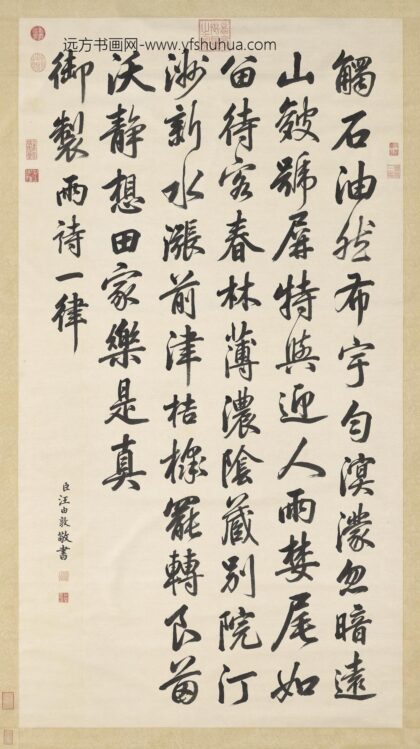 远方书画网-www.yfshuhua.com
觸石油然布宇勻溟濛忽暗遠
山皴號屏特與迎人雨婪尾如
留待客春林薄濃陰藏別院汀
洲新水漲前津桔槔罷轉良苗
沃靜想田家樂是真
御製雨詩一律
臣汪由敦敬書